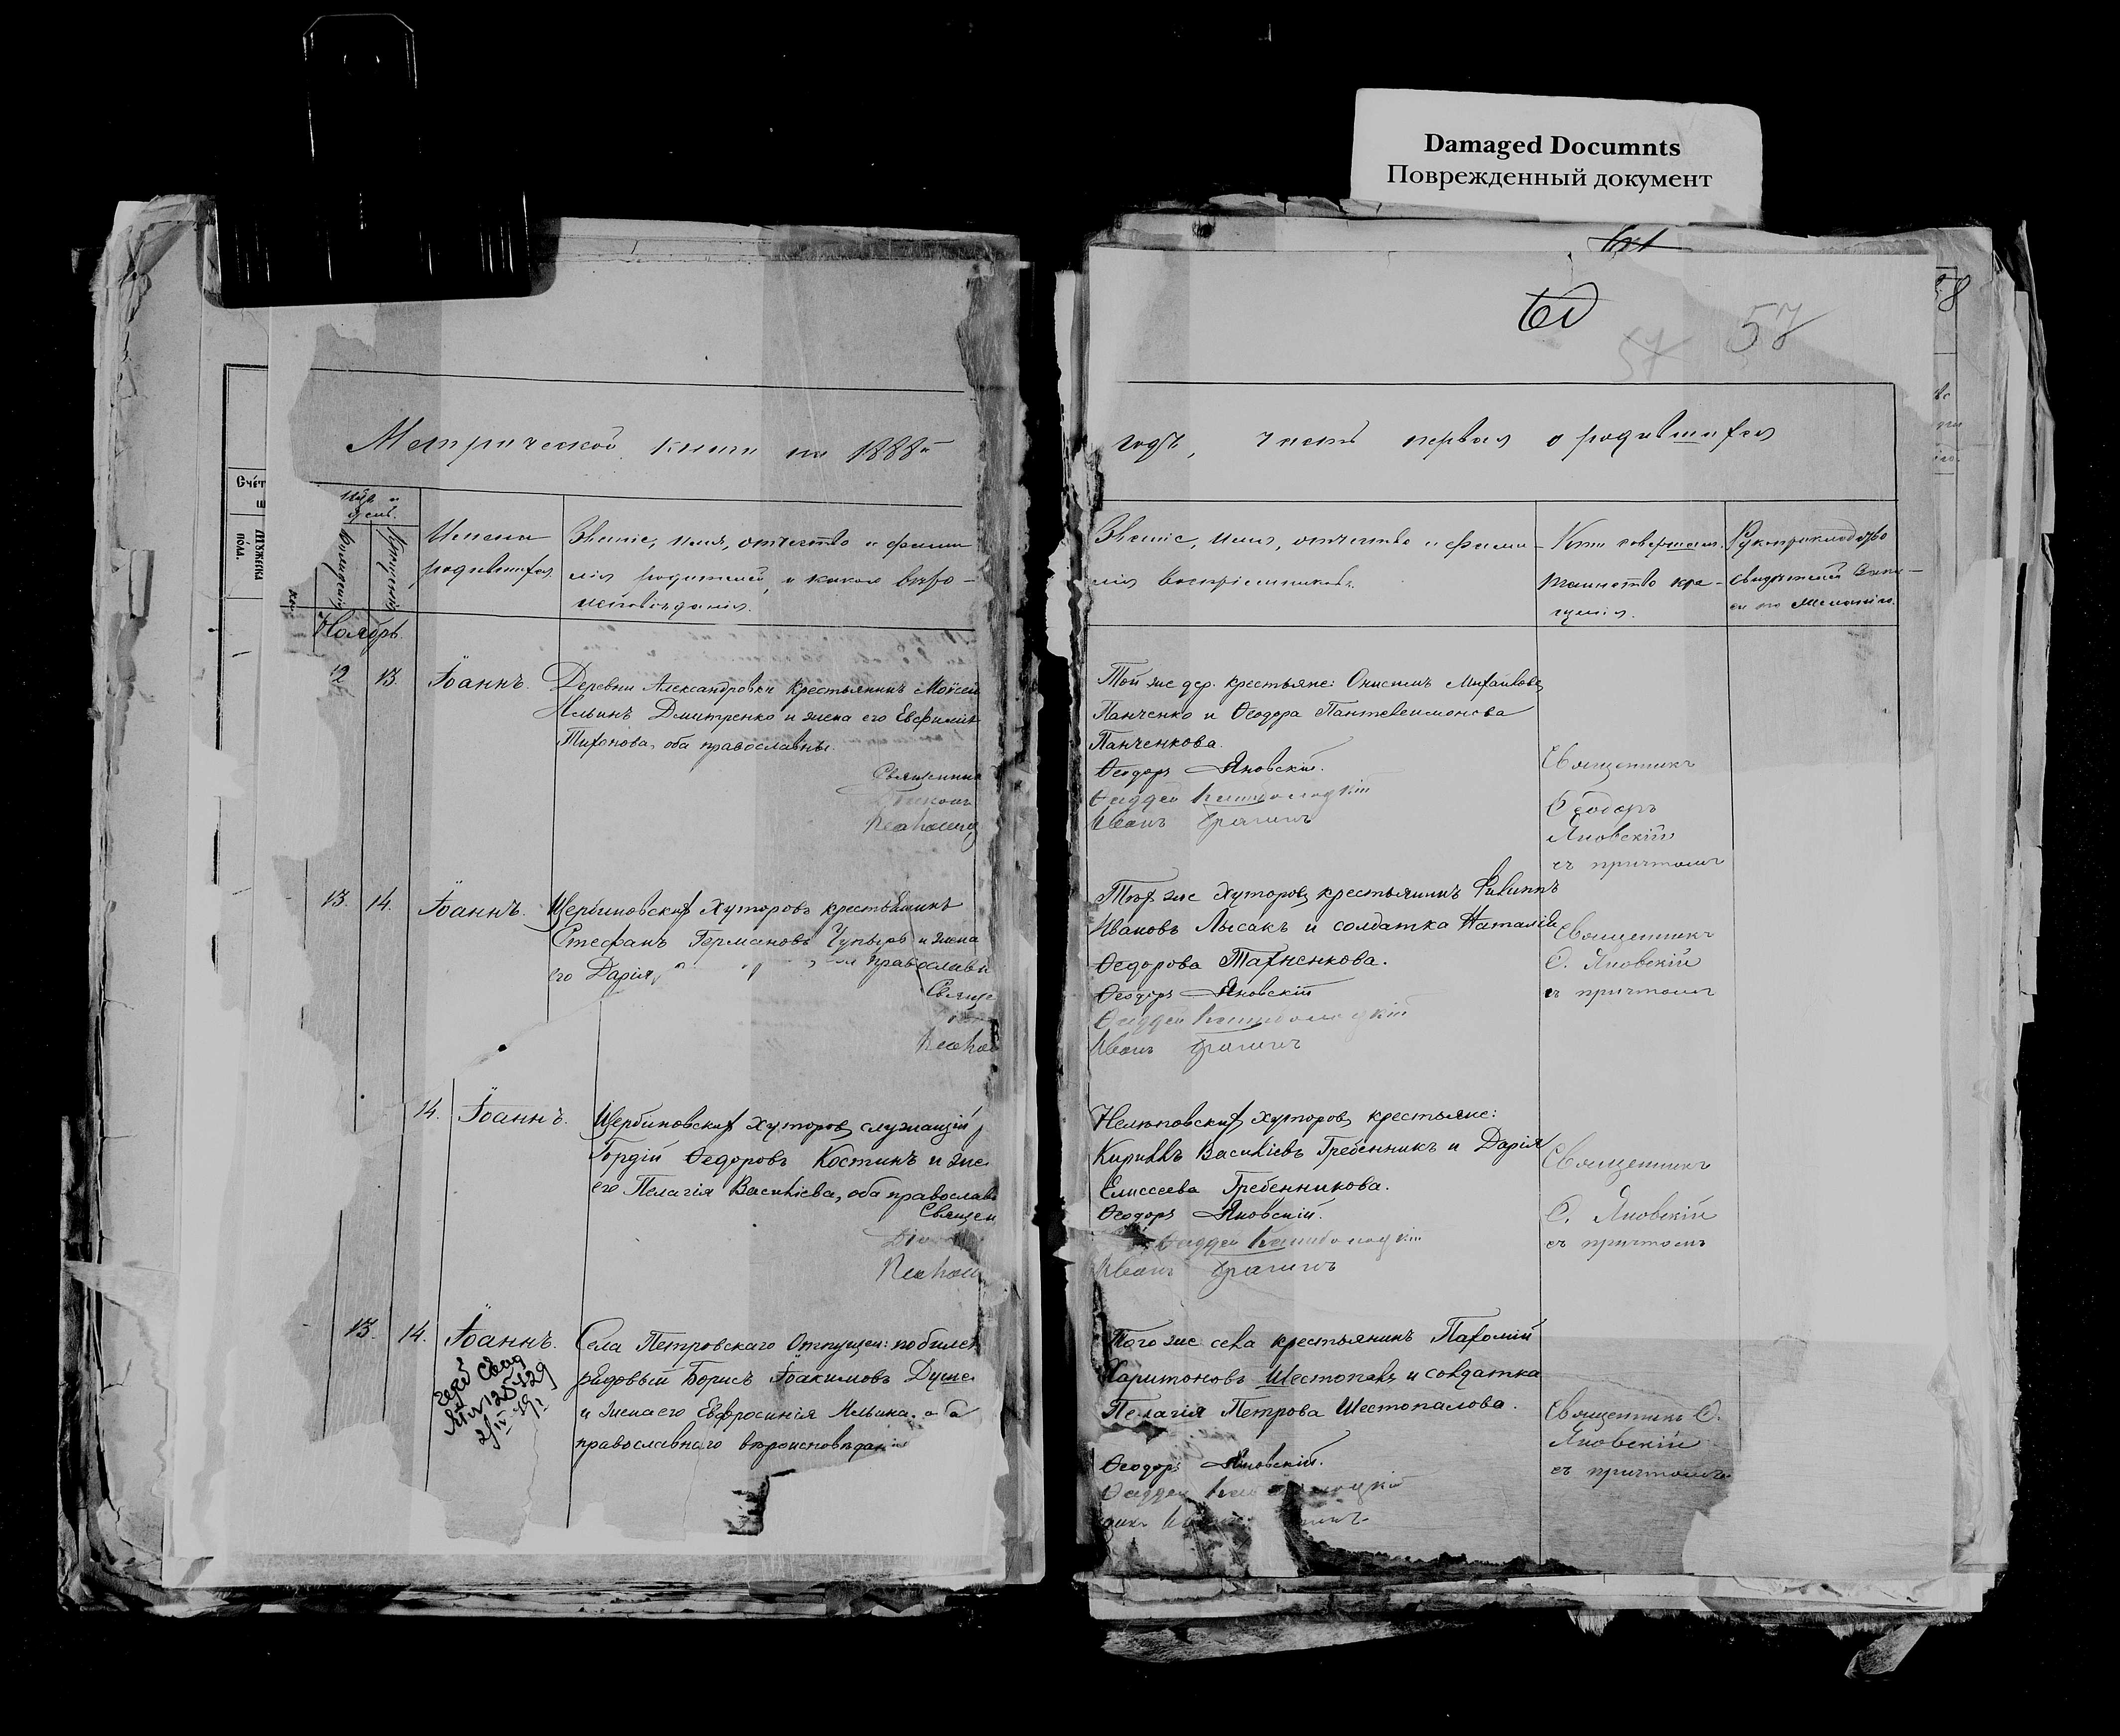 Damaged Documnts
Поврежденный документ
60
57
57
58
Метрической книги на 1888й
годъ, часть первая о родившихся
Счет
мужеска
пола.
Мѣс. и
день.
рожденія
крещенія
Имена
родившихся
Званіе, имя, отчество и фами
лія родителей, и какого вѣро-
исповѣданія.
Званіе, имя, отчество и фами-
лія воспріемниковъ.
Кто совершалъ
таинство кре-
щенія.
Рукоприкладство
свидѣтелей записи
по желанію.
Ноябрь.
12
13.
Іоаннъ.
Деревни Александровки крестьянинъ Моѵсей
Ильинъ Дмитренко и жена его Евфимія
Тихонова, оба православны.
Священник
Діаконъ
Псаломщ
Той же дер. крестьяне: Онисимъ Михайловъ
Панченко и Ѳеодора Пантелеимонова
Панченкова.
Ѳеодоръ Яновскій.
Ѳаддей
Иванъ
Священникъ
Ѳеодоръ
Яновскій
съ причтомъ
13.
14.
Іоаннъ.
Щербиновскихъ Хуторовъ крестьянинъ
Стефанъ Германовъ Чупырь и жена
его Дарія, православн
Свяще
Псало
Тѣхъ же Хуторовъ крестьянинъ Филиппъ
Ивановъ Лысакъ и солдатка Наталія
Ѳедорова Тахненкова.
Ѳеодоръ Яновскій
Ѳаддей
Иванъ
Священникъ
Ѳ. Яновскій
съ причтомъ
14.
Іоаннъ.
Щербиновскихъ Хуторовъ служащій
Гордій Ѳедоровъ Костинъ и же
его Пелагія Василіева, оба православн
Священ
Діа
Псалом
Нелюповскихъ Хуторовъ крестьяне:
Кириллъ Василіевъ Гребенникъ и Дарія
Елисеева Гребенникова.
Ѳеодоръ Яновскій.
Ѳаддей
Иванъ
Священникъ
Ѳ. Яновскій
съ причтомъ
13.
14.
Іоаннъ.
Села Петровскаго Отпущен: по билет
рядовый Борисъ Іоакимовъ Дуже
и жена его Евфросинія Ильина, оба
православнаго вѣроисповѣданія
Того же села крестьянинъ Пахомій
Харитоновъ Шестопалъ и солдатка
Пелагія Петрова Шестопалова.
Ѳеодоръ Яновскій.
Ѳаддей
Священникъ Ѳ.
Яновскій
съ причтомъ